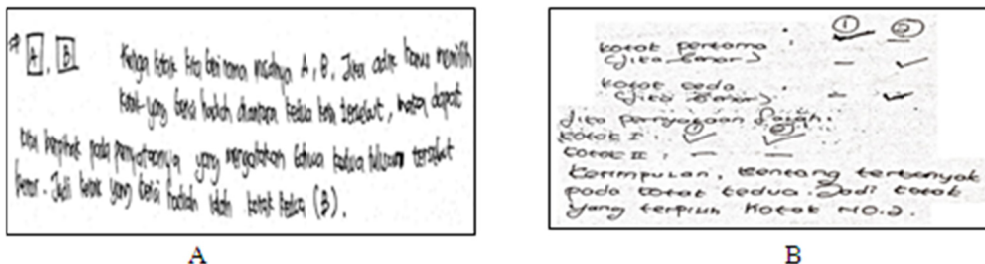 ⇒ A , B Ketiga kotak kita beri nama misalnya A, B. Jika adik harus memilih
kotak yang berisi hadiah diantara kedua kotak tersebut, maka dapat
kita berpihak pada pernyataannya yang mengatakan bahwa kedua tulisan tersebut
benar. Jadi kotak yang berisi hadiah ialah kotak kedua (B).
A
① ②
kotak pertama :
(jika benar) — ✓
kotak
(jika benar) — ✓
jika pernyataan salah:
kotak I : ① ✓ ② ✓
kotak II : — —
Kesimpulan, centang terbanyak
pada kotak kedua. Jadi kotak
yang terpilih Kotak NO.2.
B